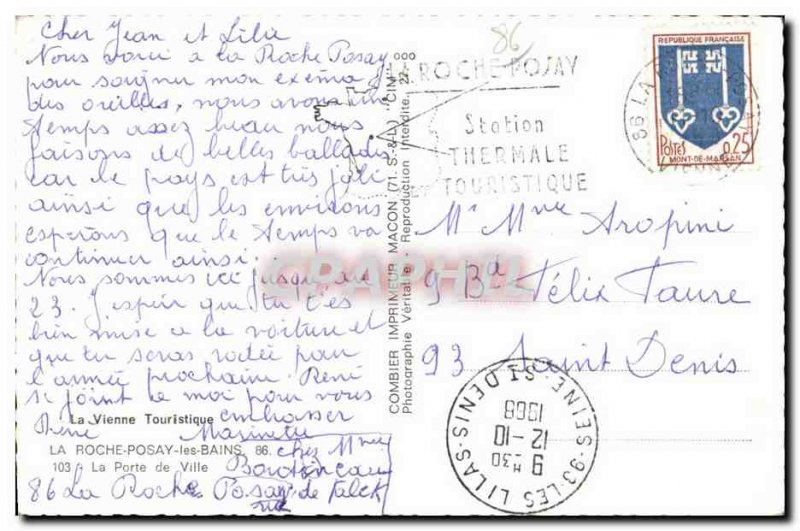 Cher Jean et Lilie
Nous voici à la Roche Posay
pour soigner mon exema
des oreilles, nous avons un
temps assez beau nous
faisons de belles ballades
car le pays est très joli
ainsi que les environs
esperons que le temps va
continuer ainsi.
Nous sommes ici jusqu'au
23. J'espere que tu t'es
bien mise a la voiture et
que tu seras rodée pour
l'année prochaine. René
se joint à moi pour vous
embrasser
La Vienne Touristique
René Marinette
LA ROCHE-POSAY-les-BAINS 86.
103 La Porte de Ville
chez Mme
86 La Roche Posay
rue de
COMBIER IMPRIMEUR MACON (71. S.-&-L.) "CIM"
Photographie Véritable - Reproduction Interdite
86
LA ROCHE-POSAY
Station
THERMALE
ET TOURISTIQUE
86 LA
VIENNE
REPUBLIQUE FRANÇAISE
POSTES 0,25
MONT-DE-MARSAN
Mr Mme Aropini
9 Bd Félix Faure
93 Saint Denis
93-LES LILAS
SEINE-ST DENIS
9 H30
12-10
1968
CPAPHIL